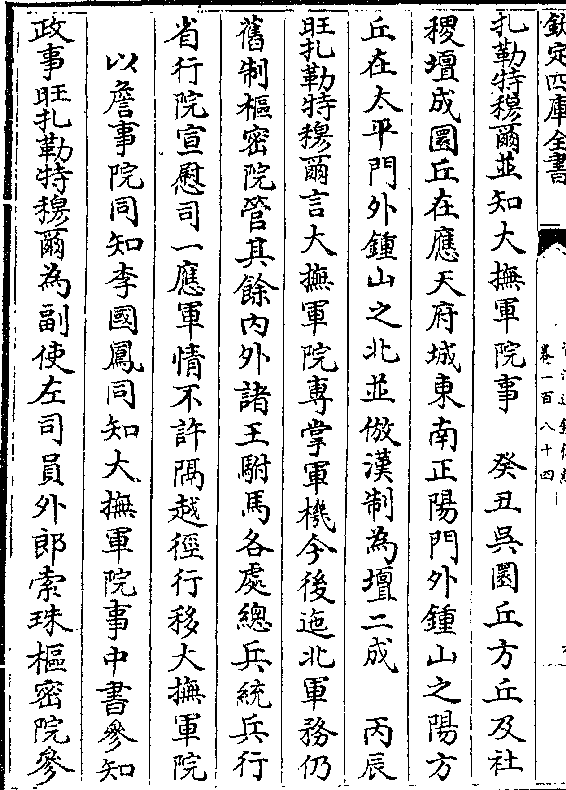 欽定四庫全書
卷一百八十四
扎勒特穆爾並知大撫軍院事　癸丑吳圜丘方丘及社
稷壇成圜丘在應天府城東南正陽門外鍾山之陽方
丘在太平門外鍾山之北並倣漢制為壇二成　丙辰
旺扎勒特穆爾言大撫軍院專掌軍機今後迤北軍務仍
舊制樞密院管其餘內外諸王駙馬各處總兵統兵行
省行院宣慰司一應軍情不許隔越徑行移大撫軍院
以詹事院同知李國鳳同知大撫軍院事中書參知
政事旺扎勒特穆爾為副使左司員外郎索珠樞密院參